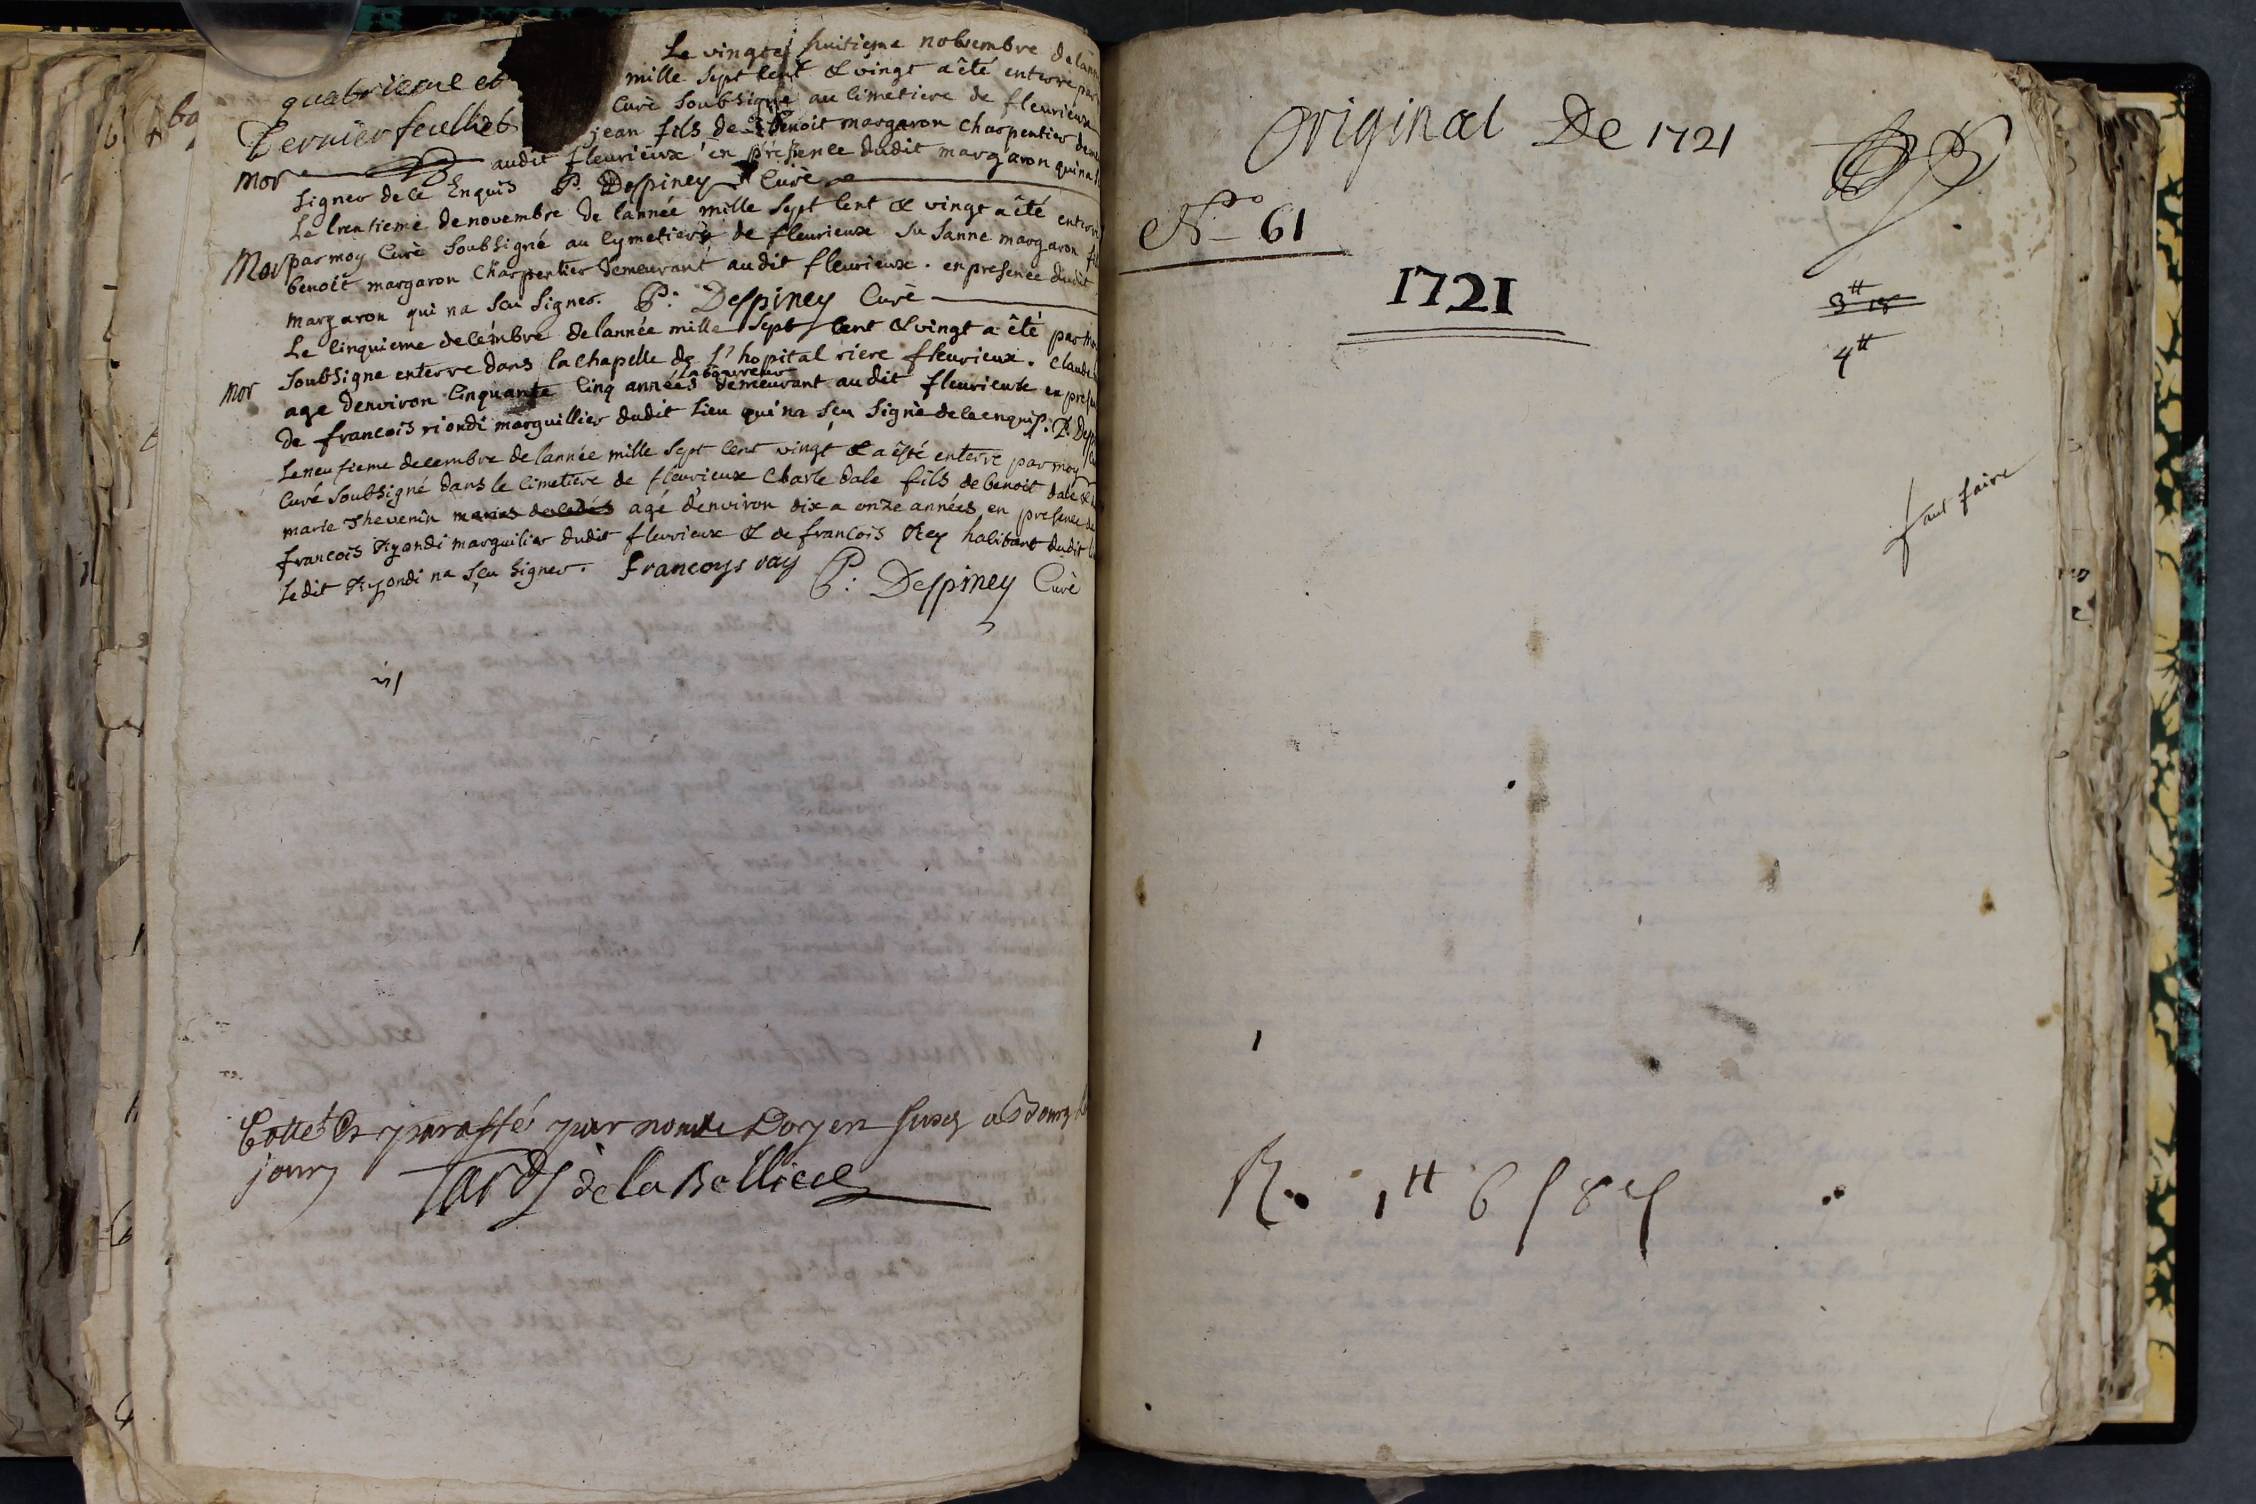 quatrieme et
Dernier feuilliet
Le vingte huitieme nobvembre de lann
mille sept cent & vingt a êté enterre par
Curé soubsigné au cimetiere de fleurieux
jean fils de benoit margaron charpentier dem
mor audit fleurieux en présence dudit margaron qui na s
signer de ce Enquis P. Despiney Curè
Le trentieme de novembre de lannée mille sept cent & vingt a êté enterré
Mor par moy Curè soubsigné au cymetiere de fleurieux su sanne margaron fil
benoit margaron Charpentier demeurant audit fleurieux. en presence dudit
margaron qui na sçu signer. P: Despiney Curè
Le cinquieme decémbre de lannée mille sept cent & vingt a êté par moy
soubsigne enterre dans la chapelle de l'hopital riere fleurieux. Claude
laboureur
mor age denviron Cinquante cinq années demeurant audit fleurieux en prese
de francois riondi marguillier dudit Lieu qui na sçu signè de ce enquis. P. Desp
Le neufieme decembre de lannée mille sept cent vingt & a êsté enterré par moy
Curé soubsigné dans le cimetiere de fleurieux Charle dale fils de benoit dale &
marie Thevenin maries decedés agé d'environ dix a onze années en presence de
francois Ryondi marguilier dudit fleurieux & de francois Rey habitant dudit li
Ledit Ryondi na sçu signer. francoys ray P: Despiney Curè
Cotté & paraffé par nous Doyen susd a Bourg
jour
Tardy de la Belliere
Original De 1721
No 61
1721
3tt 15
4tt
faut faire
R. 1tt 6 s 8 d